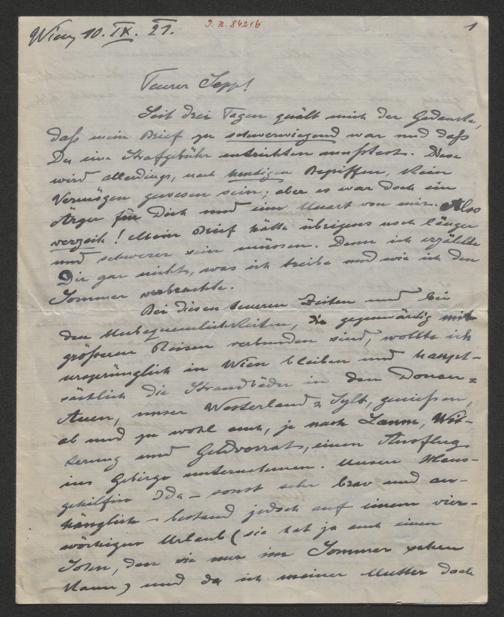 Wien, 10. IX. 21.
I. N. 84216
1
Teurer Sepp!
Seit drei Tagen quält mich der Gedanke,
daß mein Brief zu schwerwiegend war und daß
Du eine Strafgebühr entrichten musstest. Diese
wird allerdings, nach heutigen Begriffen, kein
Vermögen gewesen sein, aber es war doch ein
Ärger für Dich und eine Unart von mir. Also
verzeih! Mein Brief hätte übrigens noch länger
und schwerer sein müssen. Denn ich erzählte
Dir gar nichts, was ich treibe und wie ich den
Sommer verbrachte.
Bei diesen teueren Zeiten und bei
den Unbequemlichkeiten, die gegenwärtig mit
größeren Reisen verbunden sind, wollte ich
ursprünglich in Wien bleiben und haupt-
sächlich die Strandbäder in den Donau=
Auen, unser Westerland=Sylt, genießen,
ab und zu wohl auch, je nach Laune, Wit-
terung und Geldvorrat, einen Ausflug
ins Gebirge unternehmen. Unsere Haus-
gehilfin Ida – sonst sehr brav und an-
hänglich – bestand jedoch auf einem vier-
wöchigen Urlaub (sie hat ja auch einen
Sohn, den sie nur im Sommer sehen
kann) und da ich meiner Mutter doch